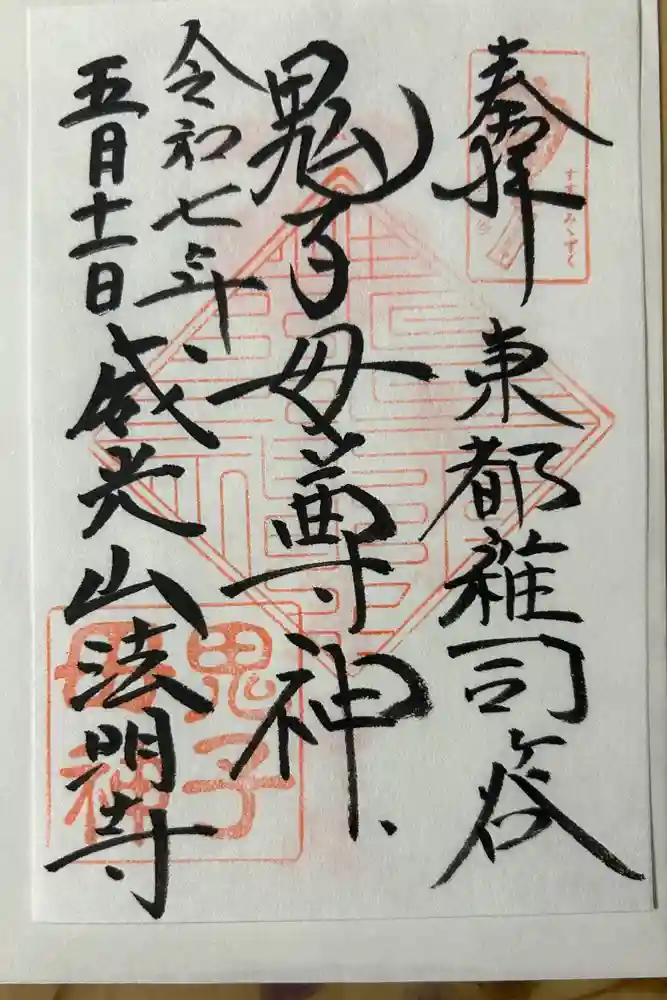 奉拝
東都雑司谷
すすきみゝずく
鬼子母尊神
令和七年
五月十一日
威光山法明寺
鬼子
母神